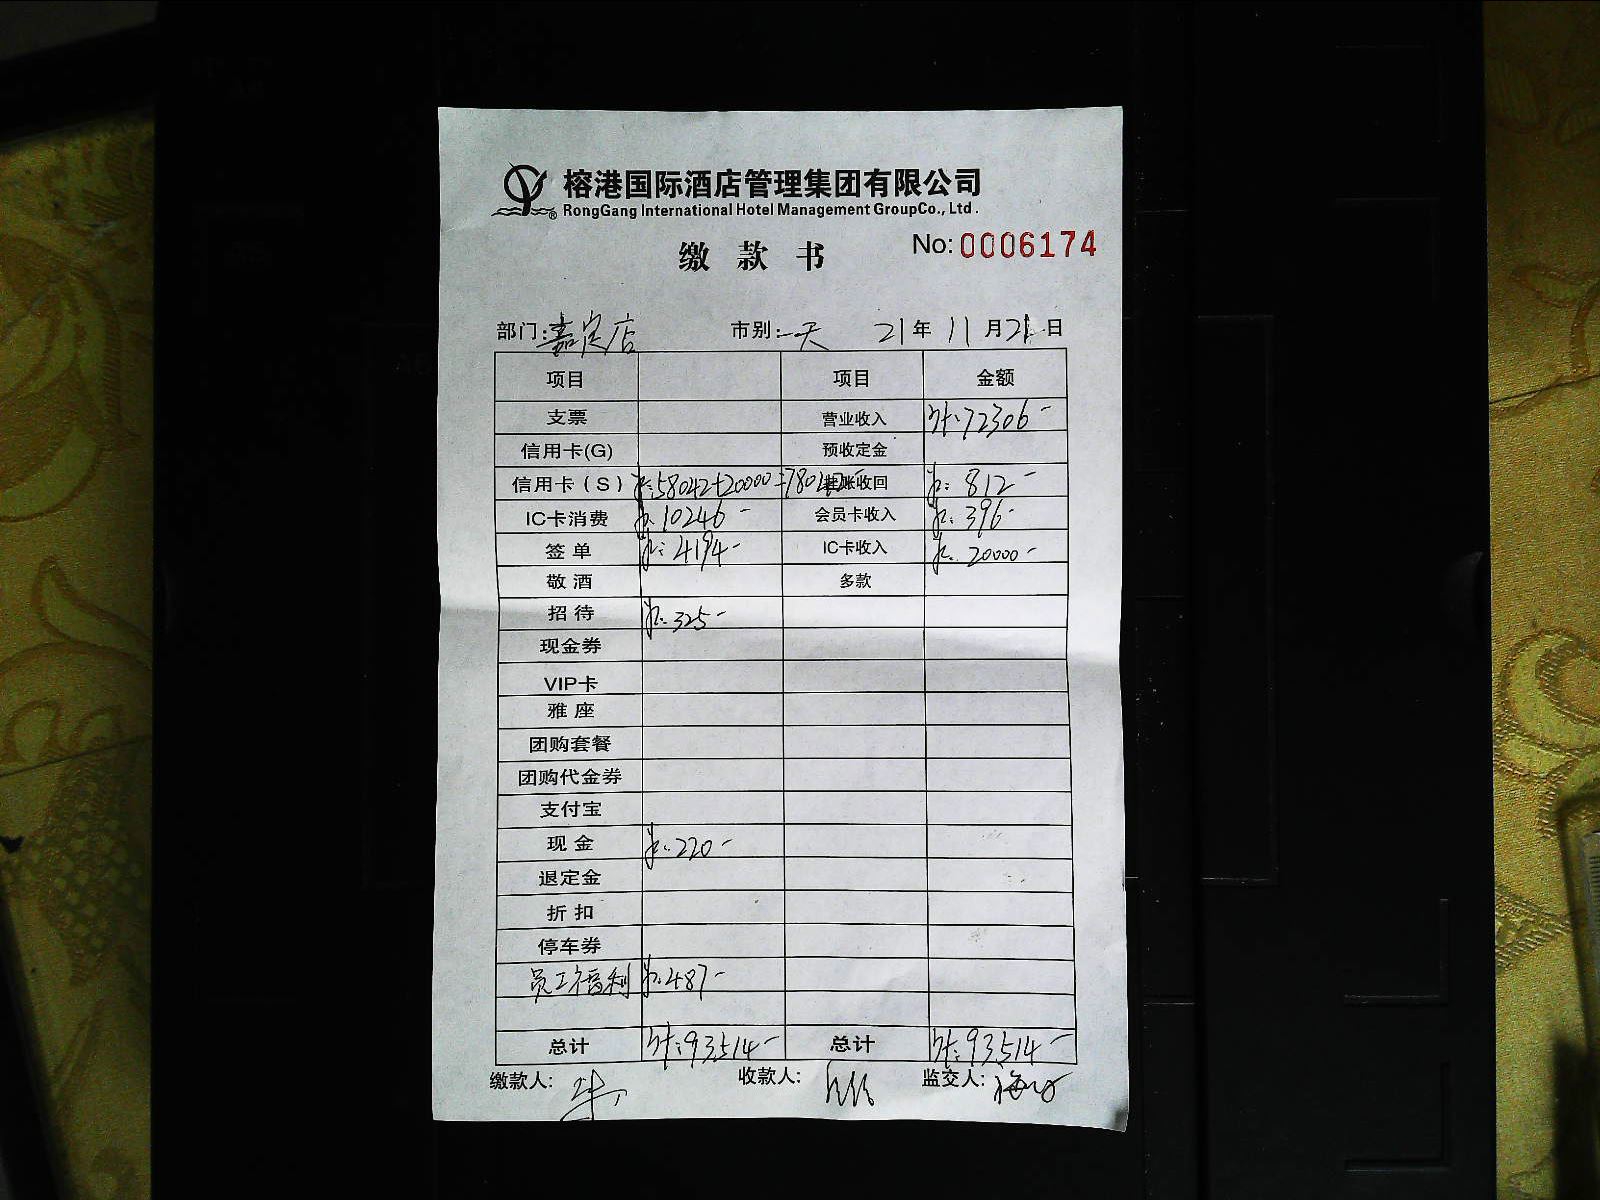 榕港国际酒店管理集团有限公司
RongGang International Hotel Management GroupCo., Ltd.
缴 款 书
No: 0006174
部门: 嘉定店 市别: 一天 21 年 11 月 21 日
项目 项目 金额
支票 营业收入 计:72306-
信用卡(G) 预收定金
信用卡(S) 58042+20000=78042- 挂账收回 812-
IC卡消费 10246- 会员卡收入 396-
签单 4194- IC卡收入 20000-
敬酒 多款
招待 325-
现金券
VIP卡
雅座
团购套餐
团购代金券
支付宝
现金 220-
退定金
折扣
停车券
员工福利 487-
总计 计:93514- 总计 计:93514-
缴款人: 收款人: 监交人: